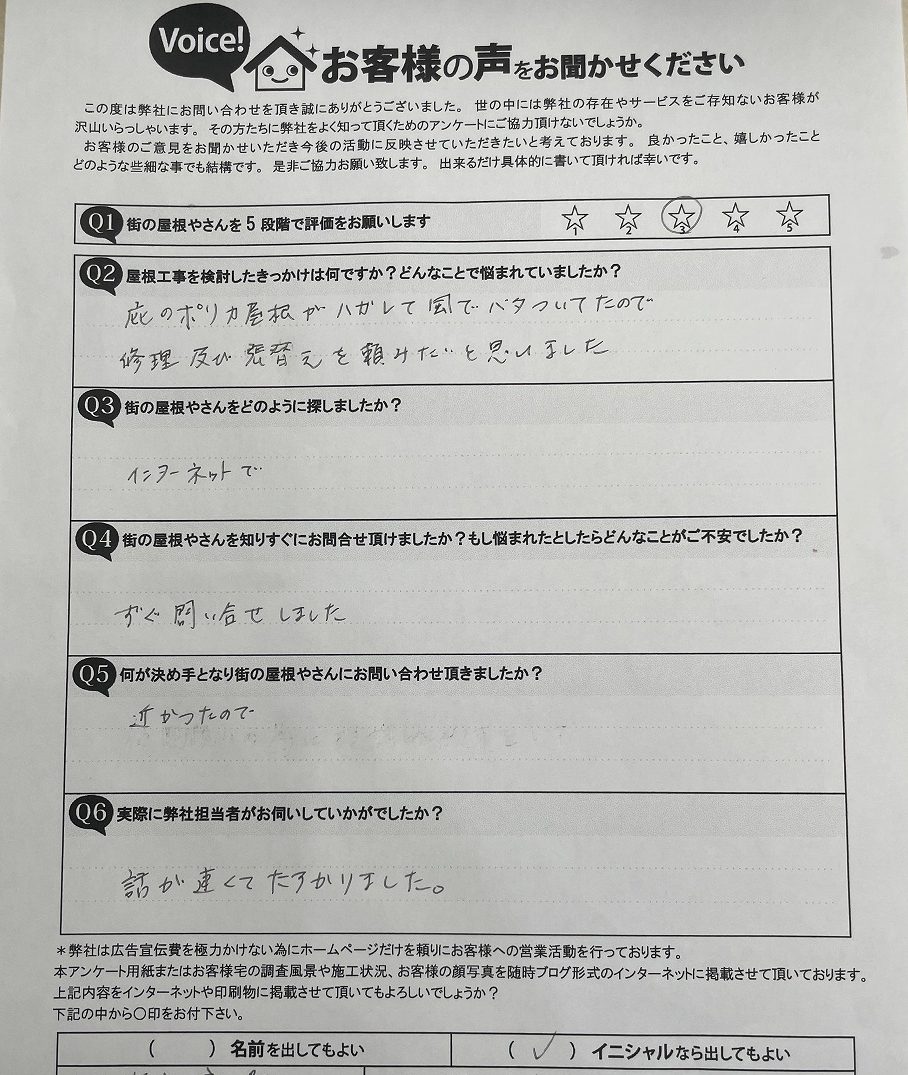 Voice!
お客様の声をお聞かせください
この度は弊社にお問い合わせを頂き誠にありがとうございました。 世の中には弊社の存在やサービスをご存知ないお客様が
沢山いらっしゃいます。 その方たちに弊社をよく知って頂くためのアンケートにご協力頂けないでしょうか。
お客様のご意見をお聞かせいただき今後の活動に反映させていただきたいと考えております。 良かったこと、嬉しかったこと
どのような些細な事でも結構です。 是非ご協力お願い致します。 出来るだけ具体的に書いて頂ければ幸いです。
Q1 街の屋根やさんを5段階で評価をお願いします ☆1 ☆2 ☆3 ☆4 ☆5
Q2 屋根工事を検討したきっかけは何ですか？どんなことで悩まれていましたか？
庇のポリカ屋根がハガレて風でバタついてたので
修理及び張替えを頼みたいと思いました
Q3 街の屋根やさんをどのように探しましたか？
インターネットで
Q4 街の屋根やさんを知りすぐにお問合せ頂けましたか？もし悩まれたとしたらどんなことがご不安でしたか？
すぐ問い合せしました
Q5 何が決め手となり街の屋根やさんにお問い合わせ頂きましたか？
近かったので
Q6 実際に弊社担当者がお伺いしていかがでしたか？
話が速くてたすかりました。
＊弊社は広告宣伝費を極力かけない為にホームページだけを頼りにお客様への営業活動を行っております。
本アンケート用紙またはお客様宅の調査風景や施工状況、お客様の顔写真を随時ブログ形式のインターネットに掲載させて頂いております。
上記内容をインターネットや印刷物に掲載させて頂いてもよろしいでしょうか？
下記の中から〇印をお付下さい。
（　　）名前を出してもよい （✓）イニシャルなら出してもよい